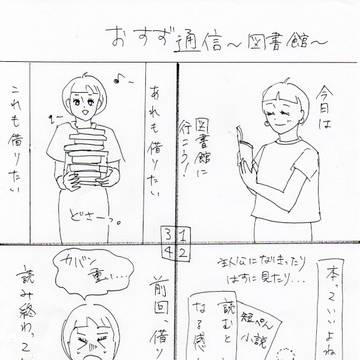 おすず通信〜図書館〜
今日は
図書館に
行こう!
1
本っていいよね
主人公になりきったり
はすに見たり…
短ぺん
小説
読むと
なる感
2
あれも借りたい
これも借りたい
どさーっ。
3
4
前回借り
カバン
重い…
読み終わって